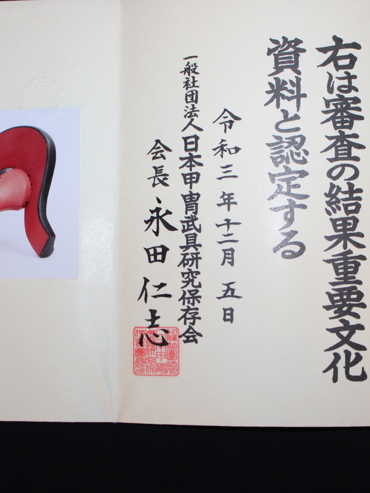 右は審査の結果重要文化
資料と認定する
令和三年十一月五日
一般社団法人日本甲冑武具研究保存会
会長 永田仁志